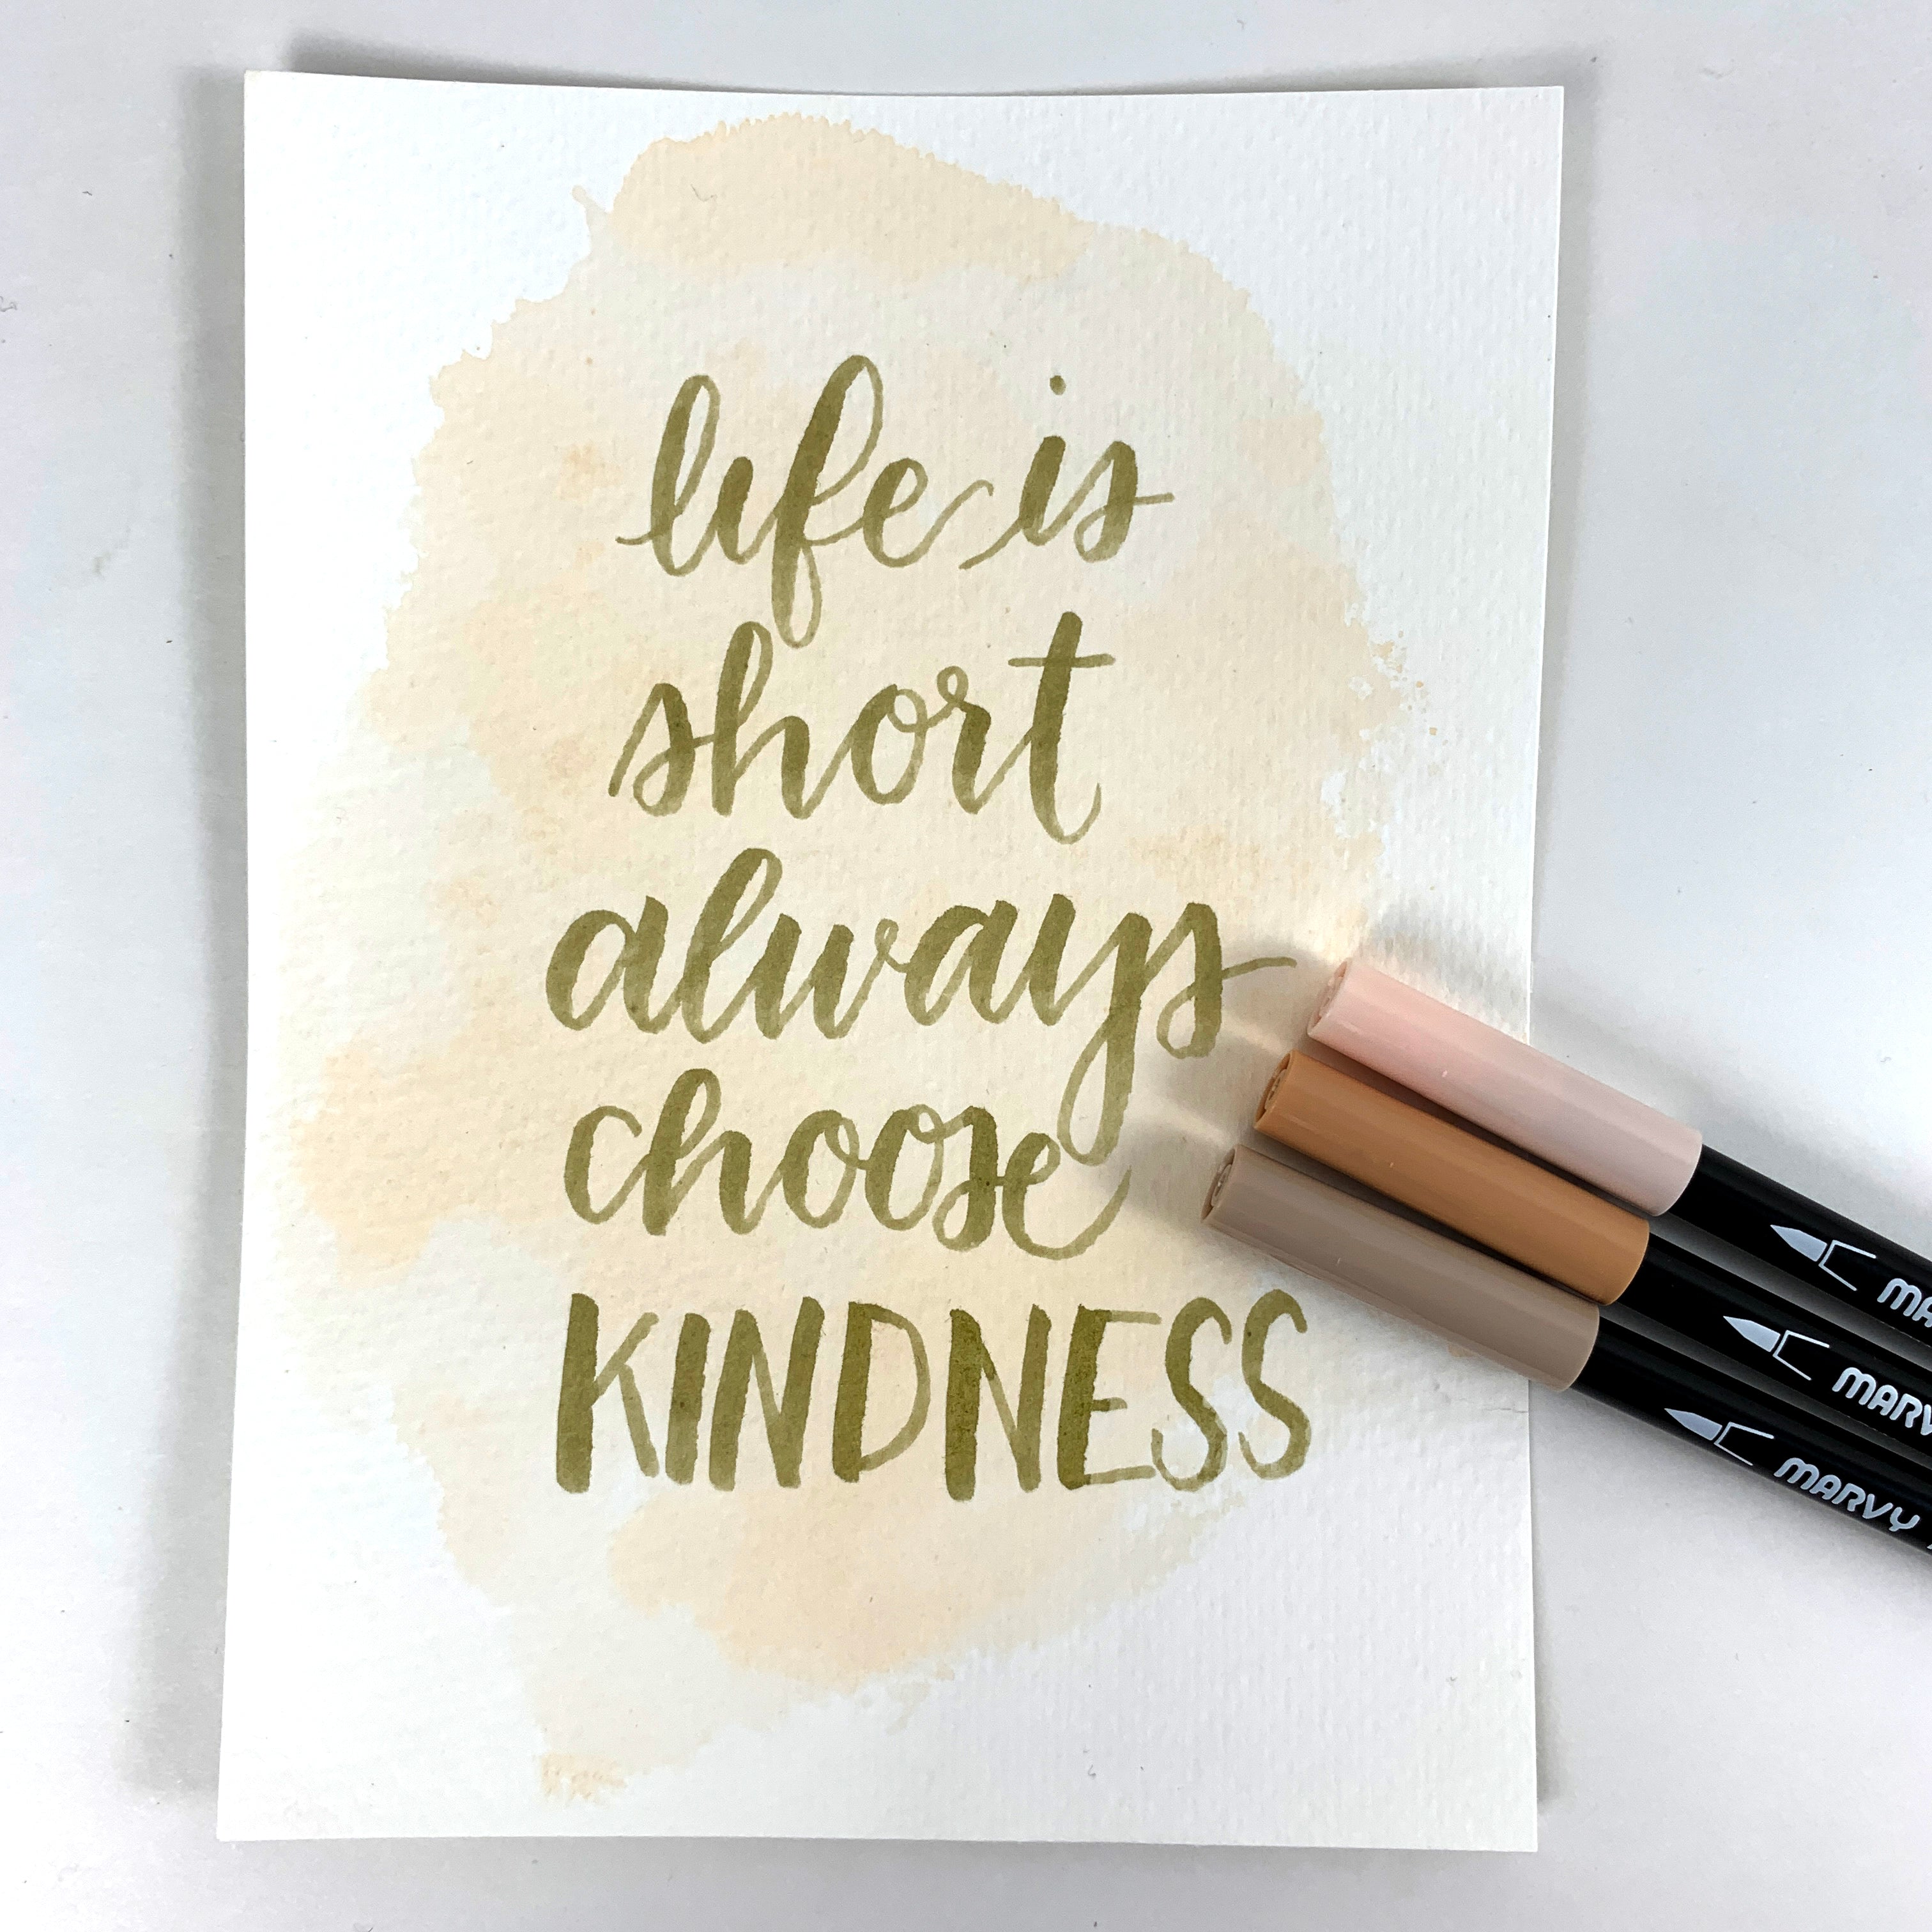 life is
short
always
choose
KINDNESS
MARVY
MARV
MA